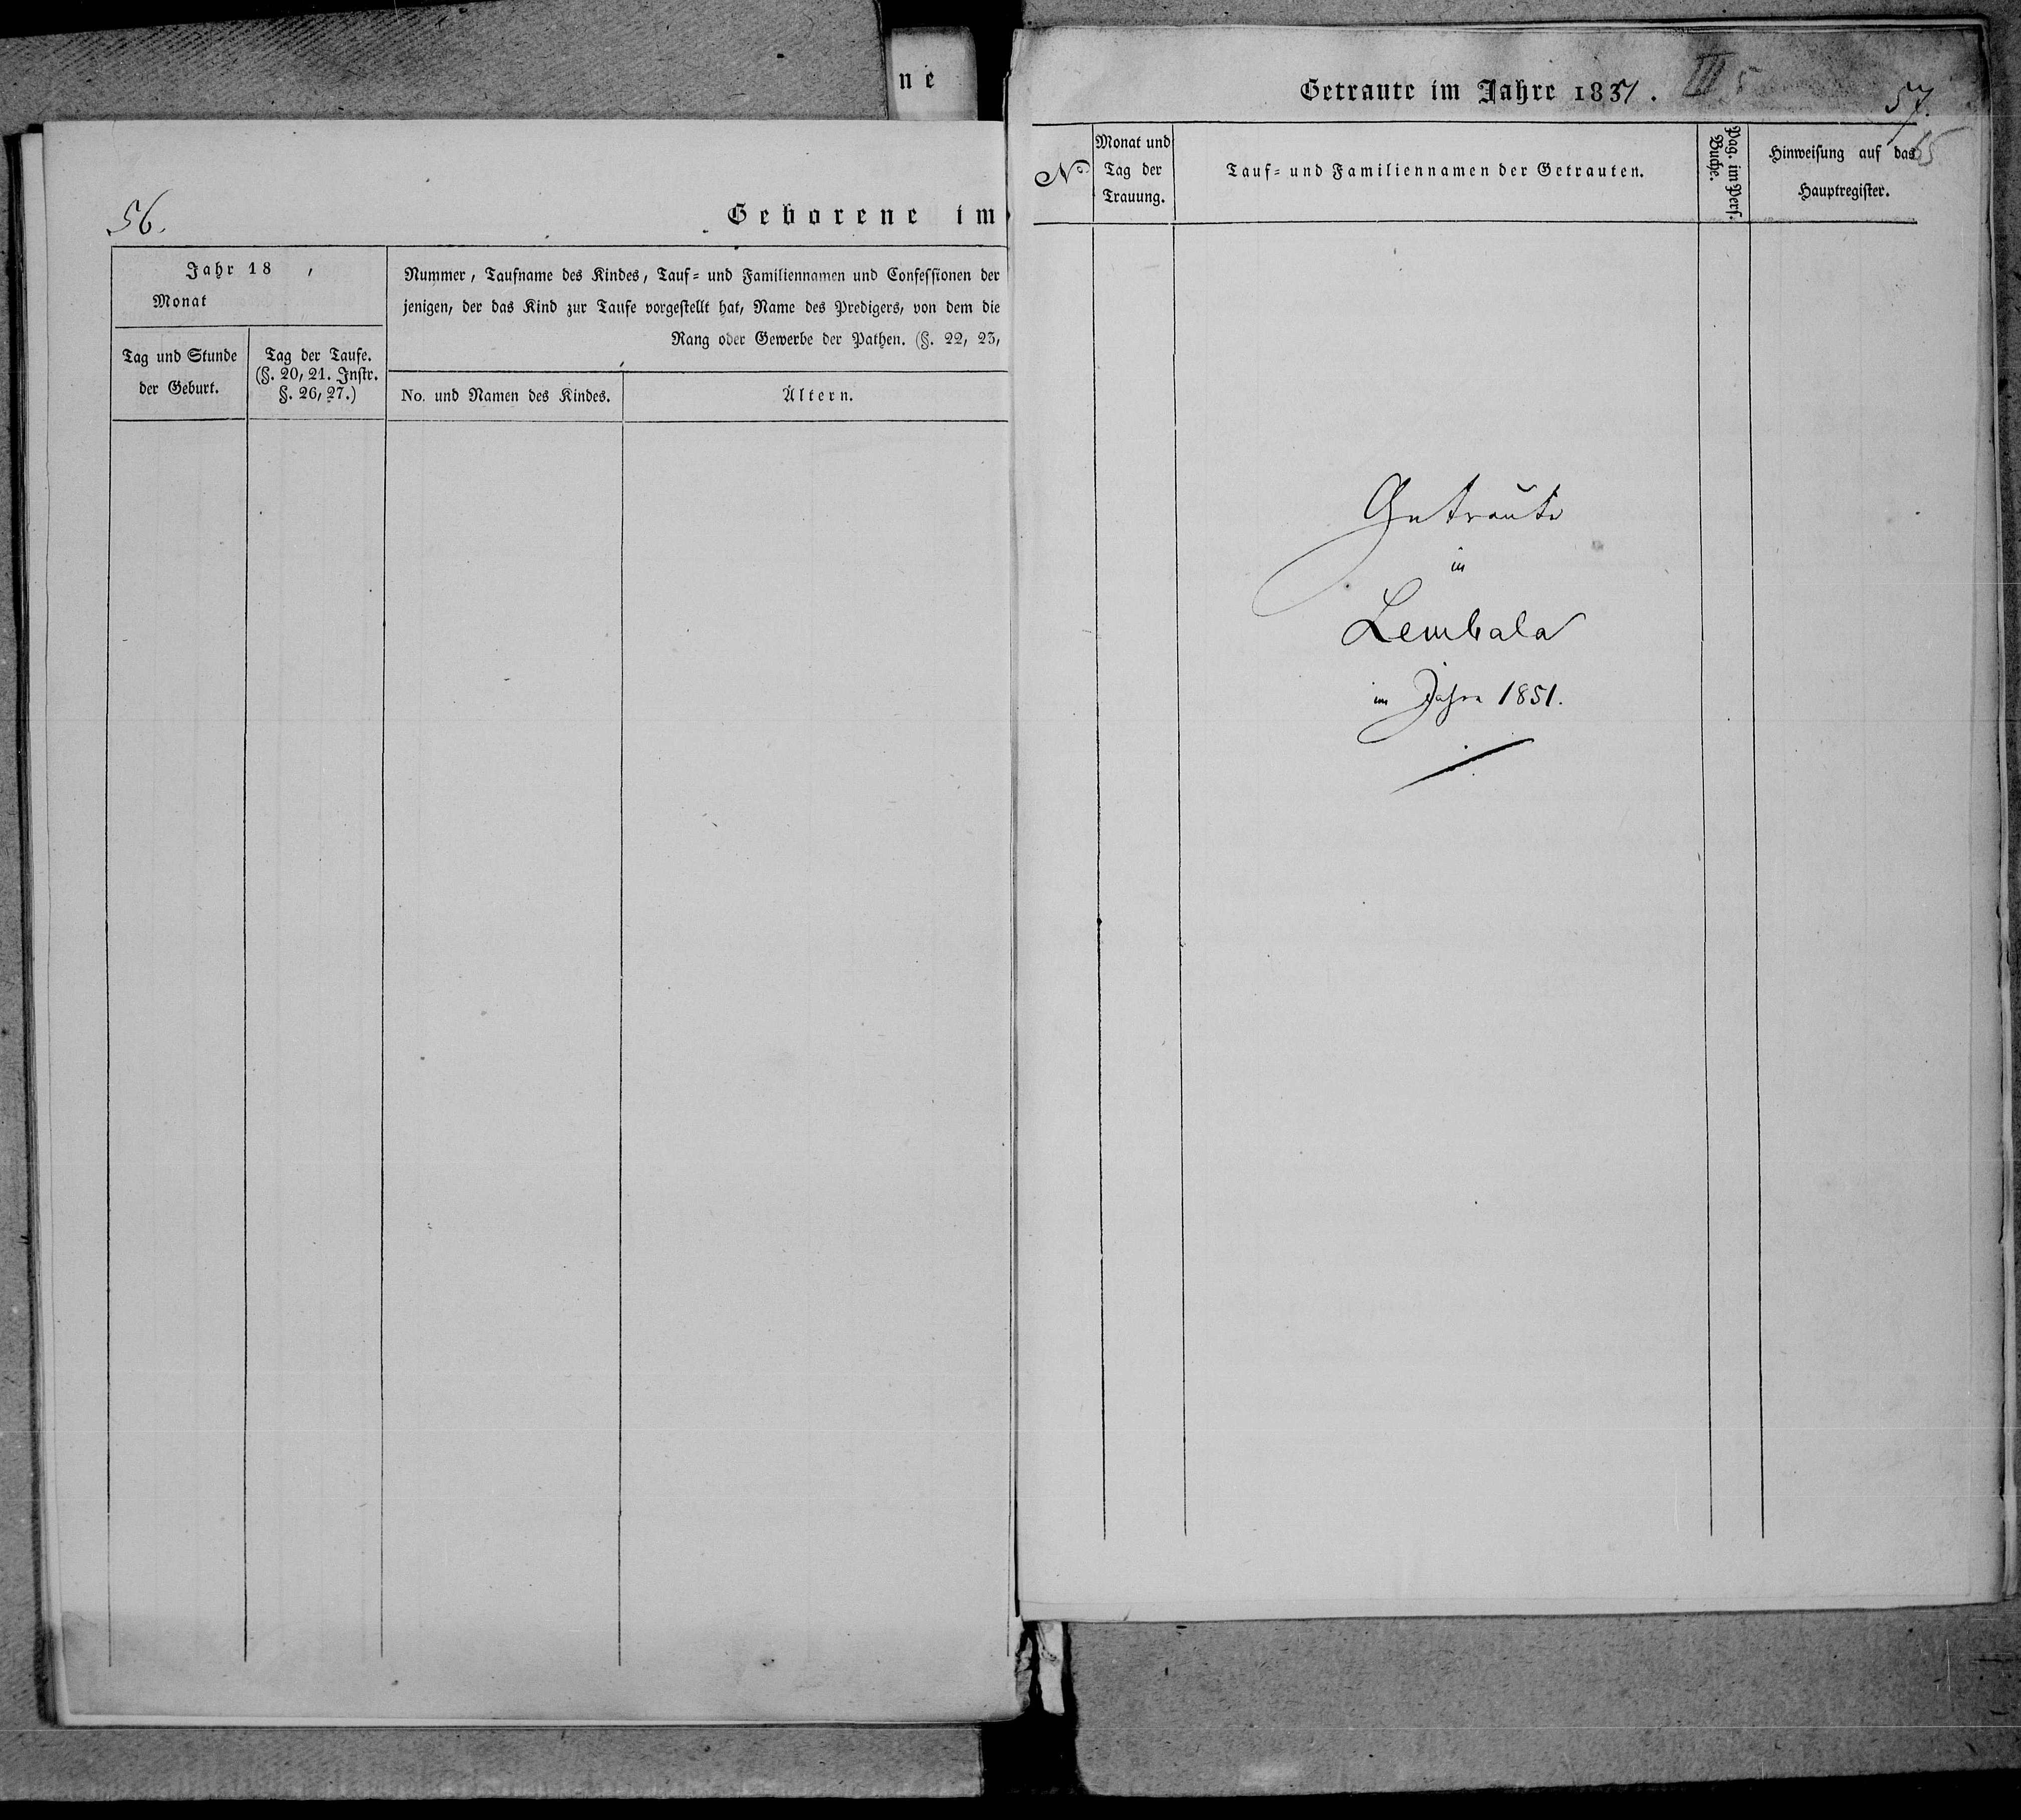 ne
56.
Geborene im
Jahr 18
Monat
Tag und Stunde
der Geburt.
Tag der Taufe.
(§. 20, 21. Instr.
§. 26, 27.)
Nummer, Taufname des Kindes, Tauf- und Familiennamen und Confessionen der
jenigen, der das Kind zur Taufe vorgestellt hat, Name des Predigers, von dem die
Rang oder Gewerbe der Pathen. (§. 22, 23,
No. und Namen des Kindes.
Ältern.
Getraute im Jahre 1851.
III 5
57.
65
No
Monat und
Tag der
Trauung.
Tauf- und Familiennamen der Getrauten.
Pag. im Pers.
Buche.
Hinweisung auf das
Hauptregister.
Getraute
in
Lembala
im Jahre 1851.